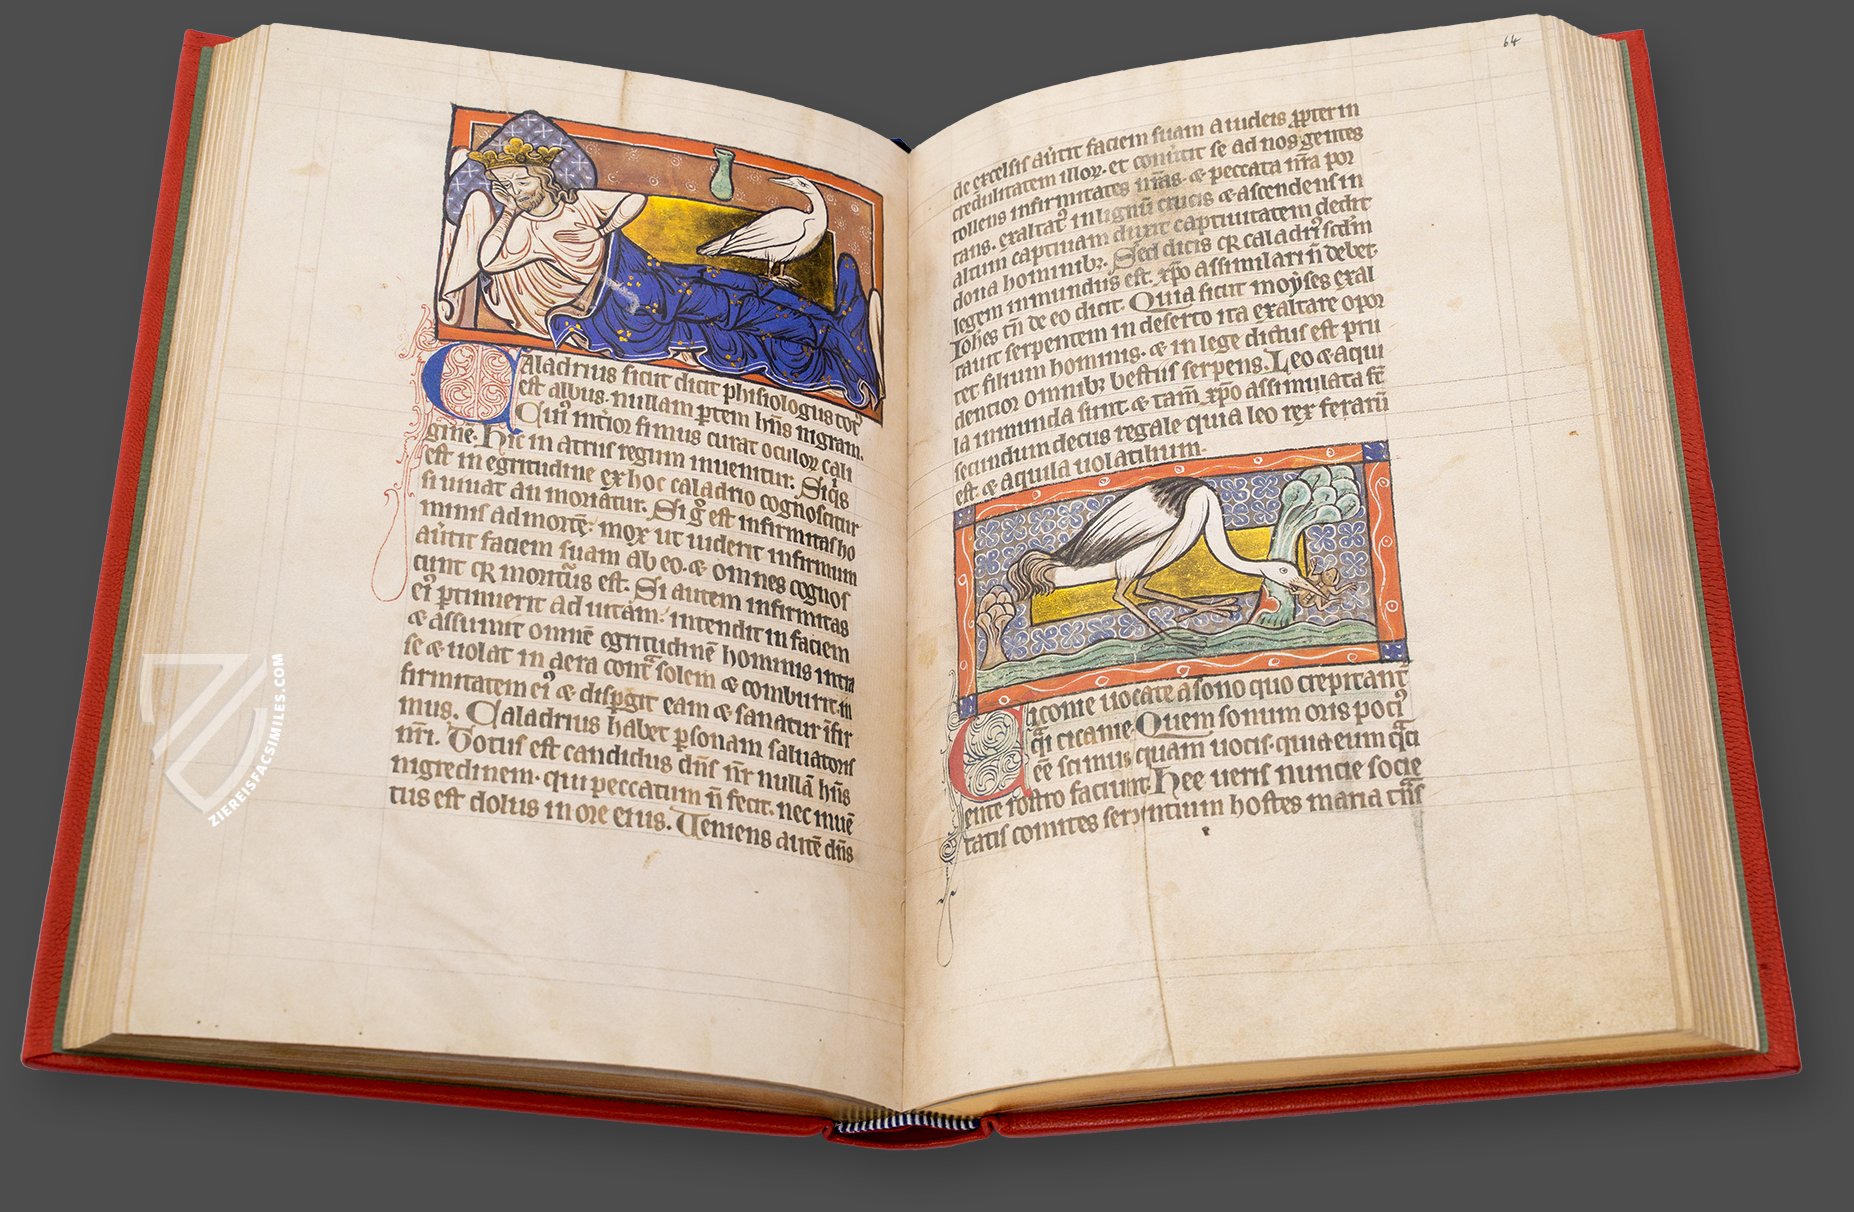 Caladrius sicut dicit phisiologus tot'
est albus. nullam ptem hñs nigram.
Cui' int'ior fimus curat oculor cali
gine. Hic in atriis regum inuenitur. Siq's
est in egritudine ex hoc caladrio cognoscitur
si uiuat an moriatur. Si g° est infirmitas ho
minis ad mortē: mox ut uiderit infirmum
au'tit faciem suam ab eo. & omnes cognos
cunt qꝛ moritur' est. Si autem infirmitas
ei' ptinuerit ad uitam: intendit in faciem
& assumit omnē egritudinē hominis intra
se & uolat in aera cont̃ solem & comburit in
firmitatem ei' & disꝑgit eam & sanatur īfir
mus. Caladrius habet ꝑsonam saluatoris
nr̄i. Totus est candidus dn̄s nr̄ nullā hn̄s
nigredinem. qui peccatum n̄ fecit. nec inuē
tus est dolus in ore eius. Ueniens autē dn̄s
64
de excelsis au'tit faciem suam a iudeis ꝓpter in
credulitatem illoꝝ. et conu'tit se ad nos gentes
tollens infirmitates nr̄as. & peccata nr̄a por
tans. exaltat' in lignū crucis & ascendens in
altum captiuam duxit captiuitatem dedit
dona hominibꝫ. Sed dicis qꝛ caladri' scdm
legem inmundus est. xp̄o assimilari n̄ debet.
Ioh̄es tn̄ de eo dicit. Quia sicut moyses exal
tauit serpentem in deserto ita exaltare opor
tet filium hominis. & in lege dictus est pru
dentior omnibꝫ bestiis serpens. Leo & aqui
la inmunda sunt & tam̄ xp̄o assimilata st̄
secundum decus regale quia leo rex ferarū
est. & aquila uolatilium.
Ciconie uocate a sono quo crepitant
q̃i cicanie. Quem sonum oris poci'
eē scimus quam uocis. quia eum q̃ci
ente rostro faciunt. Hee ueris nuncie socie
tatis comites serpentium hostes maria
ZIEREISFACSIMILES.COM